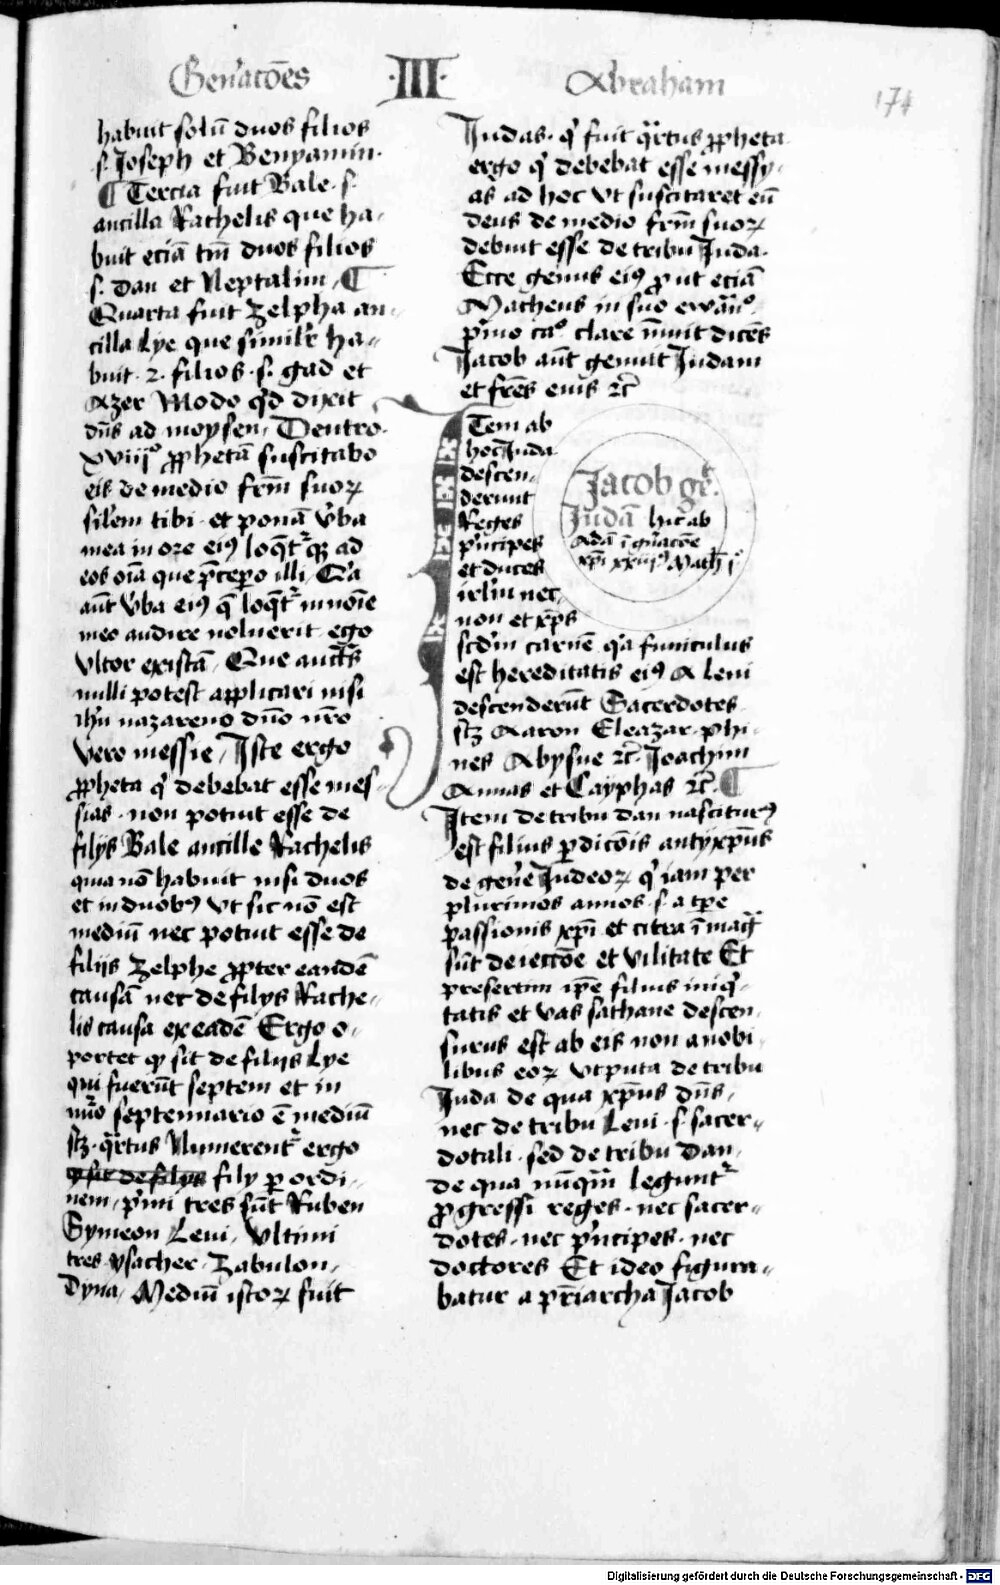 Gen̄acōes ·III· Abraham
174
habuit solū duos filios
.s. Joseph et Benyamin.
¶ Tercia fuit Bale .s.
ancilla Rachelis que ha-
buit eciā tm̄ duos filios
.s. dan et Neptalim, ¶
Quarta fuit Zelpha an-
cilla Lye que simil'r ha-
buit .2. filios .s. gad et
Azer Modo qd dixit
dn̄s ad moysen, Deutro.
xviijº ꝓphetā suscitabo
eis de medio frm̄ suoꝝ
sil'em tibi . et ponā v̄ba
mea in ore eiꝰ loq̄tr qꝫ ad
eos oīa que p̄cepero illi, Qr̄a
aūt v̄ba eiꝰ q̄ loq̄tr in noīe
meo audire noluerit ego
vltor existā, Que auct̄s
nulli potest applicari nisi
ih'u nazareno dn̄o nr̄o
vero messie, Iste ergo
ꝓpheta q' debebat esse mes-
sias . non potuit esse de
filijs Bale ancille Rachelis
quia nō habuit nisi duos
et in duobꝰ vt sic nō est
mediū nec potuit esse de
filijs Zelphe ꝓpter eandē
causā nec de filys Rache-
lis causa ex eadē Ergo o-
portet ꝙ sit de filijs Lye
qui fuerūt septem et in
nūo septennario ē mediū
scꝫ . qr̄tus Numerentr ergo
ꝙ sit de filys fily ꝑ ordi-
nem, p'mi tres sūt Ruben
Symeon Leui, vltimi
tres ysacher . Zabulon,
Dyna, Mediū istoꝝ fuit
Judas . q' fuit qr̄tus ꝓpheta
ergo q' debebat esse messy-
as ad hoc vt suscitaret eū
deus de medio frm̄ suoꝝ
debuit esse de tribu Juda.
Ecce genus eiꝰ ꝓut eciā
Matheus in suo ewānº.
p'mo caº. clare īnuit dicēs
Jacob aūt genuit Judam
et frēs euis ꝛc̄
Item ab
hoc Juda
descen-
derunt
Reges
p'ncipes
et duces
irl'm nec
non et xp̄s
Jacob ge^t.
Judā hic ab
adā ī gn̄acōe
xp̄i xxiijº Math. jº
scd'm carnē qa funiculus
est hereditatis eiꝰ A leui
descenderūt Sacerdotes
scꝫ Aaron Eleazar . phi-
nes Abysue ꝛc̄. Joachim
Annas et Cayphas ꝛc̄. ¶
Item de tribu dan nasciturꝰ
est filius ꝑdicōis antyxp̄us
de gen̄e Judeoꝝ q' iam per
plurimos annos .s. a tp̄e
passionis xp̄i et citra ī mag̅
sūt deieccōe et vilitate Et
presertim ip̄e filius iniq'-
tatis et vas sathane descen-
surus est ab eis non a nobi-
libus eoꝝ vtputa de tribu
Juda de qua xp̄us dn̄s,
nec de tribu Leui .s. sacer-
dotali . sed de tribu dan,
de qua nūqm̄ leguntr
ꝓgressi reges . nec sacer-
dotes . nec p'ncipes . nec
doctores Et ideo figura-
batur a pr̄iarcha Jacob
Digitalisierung gefördert durch die Deutsche Forschungsgemeinschaft - DFG